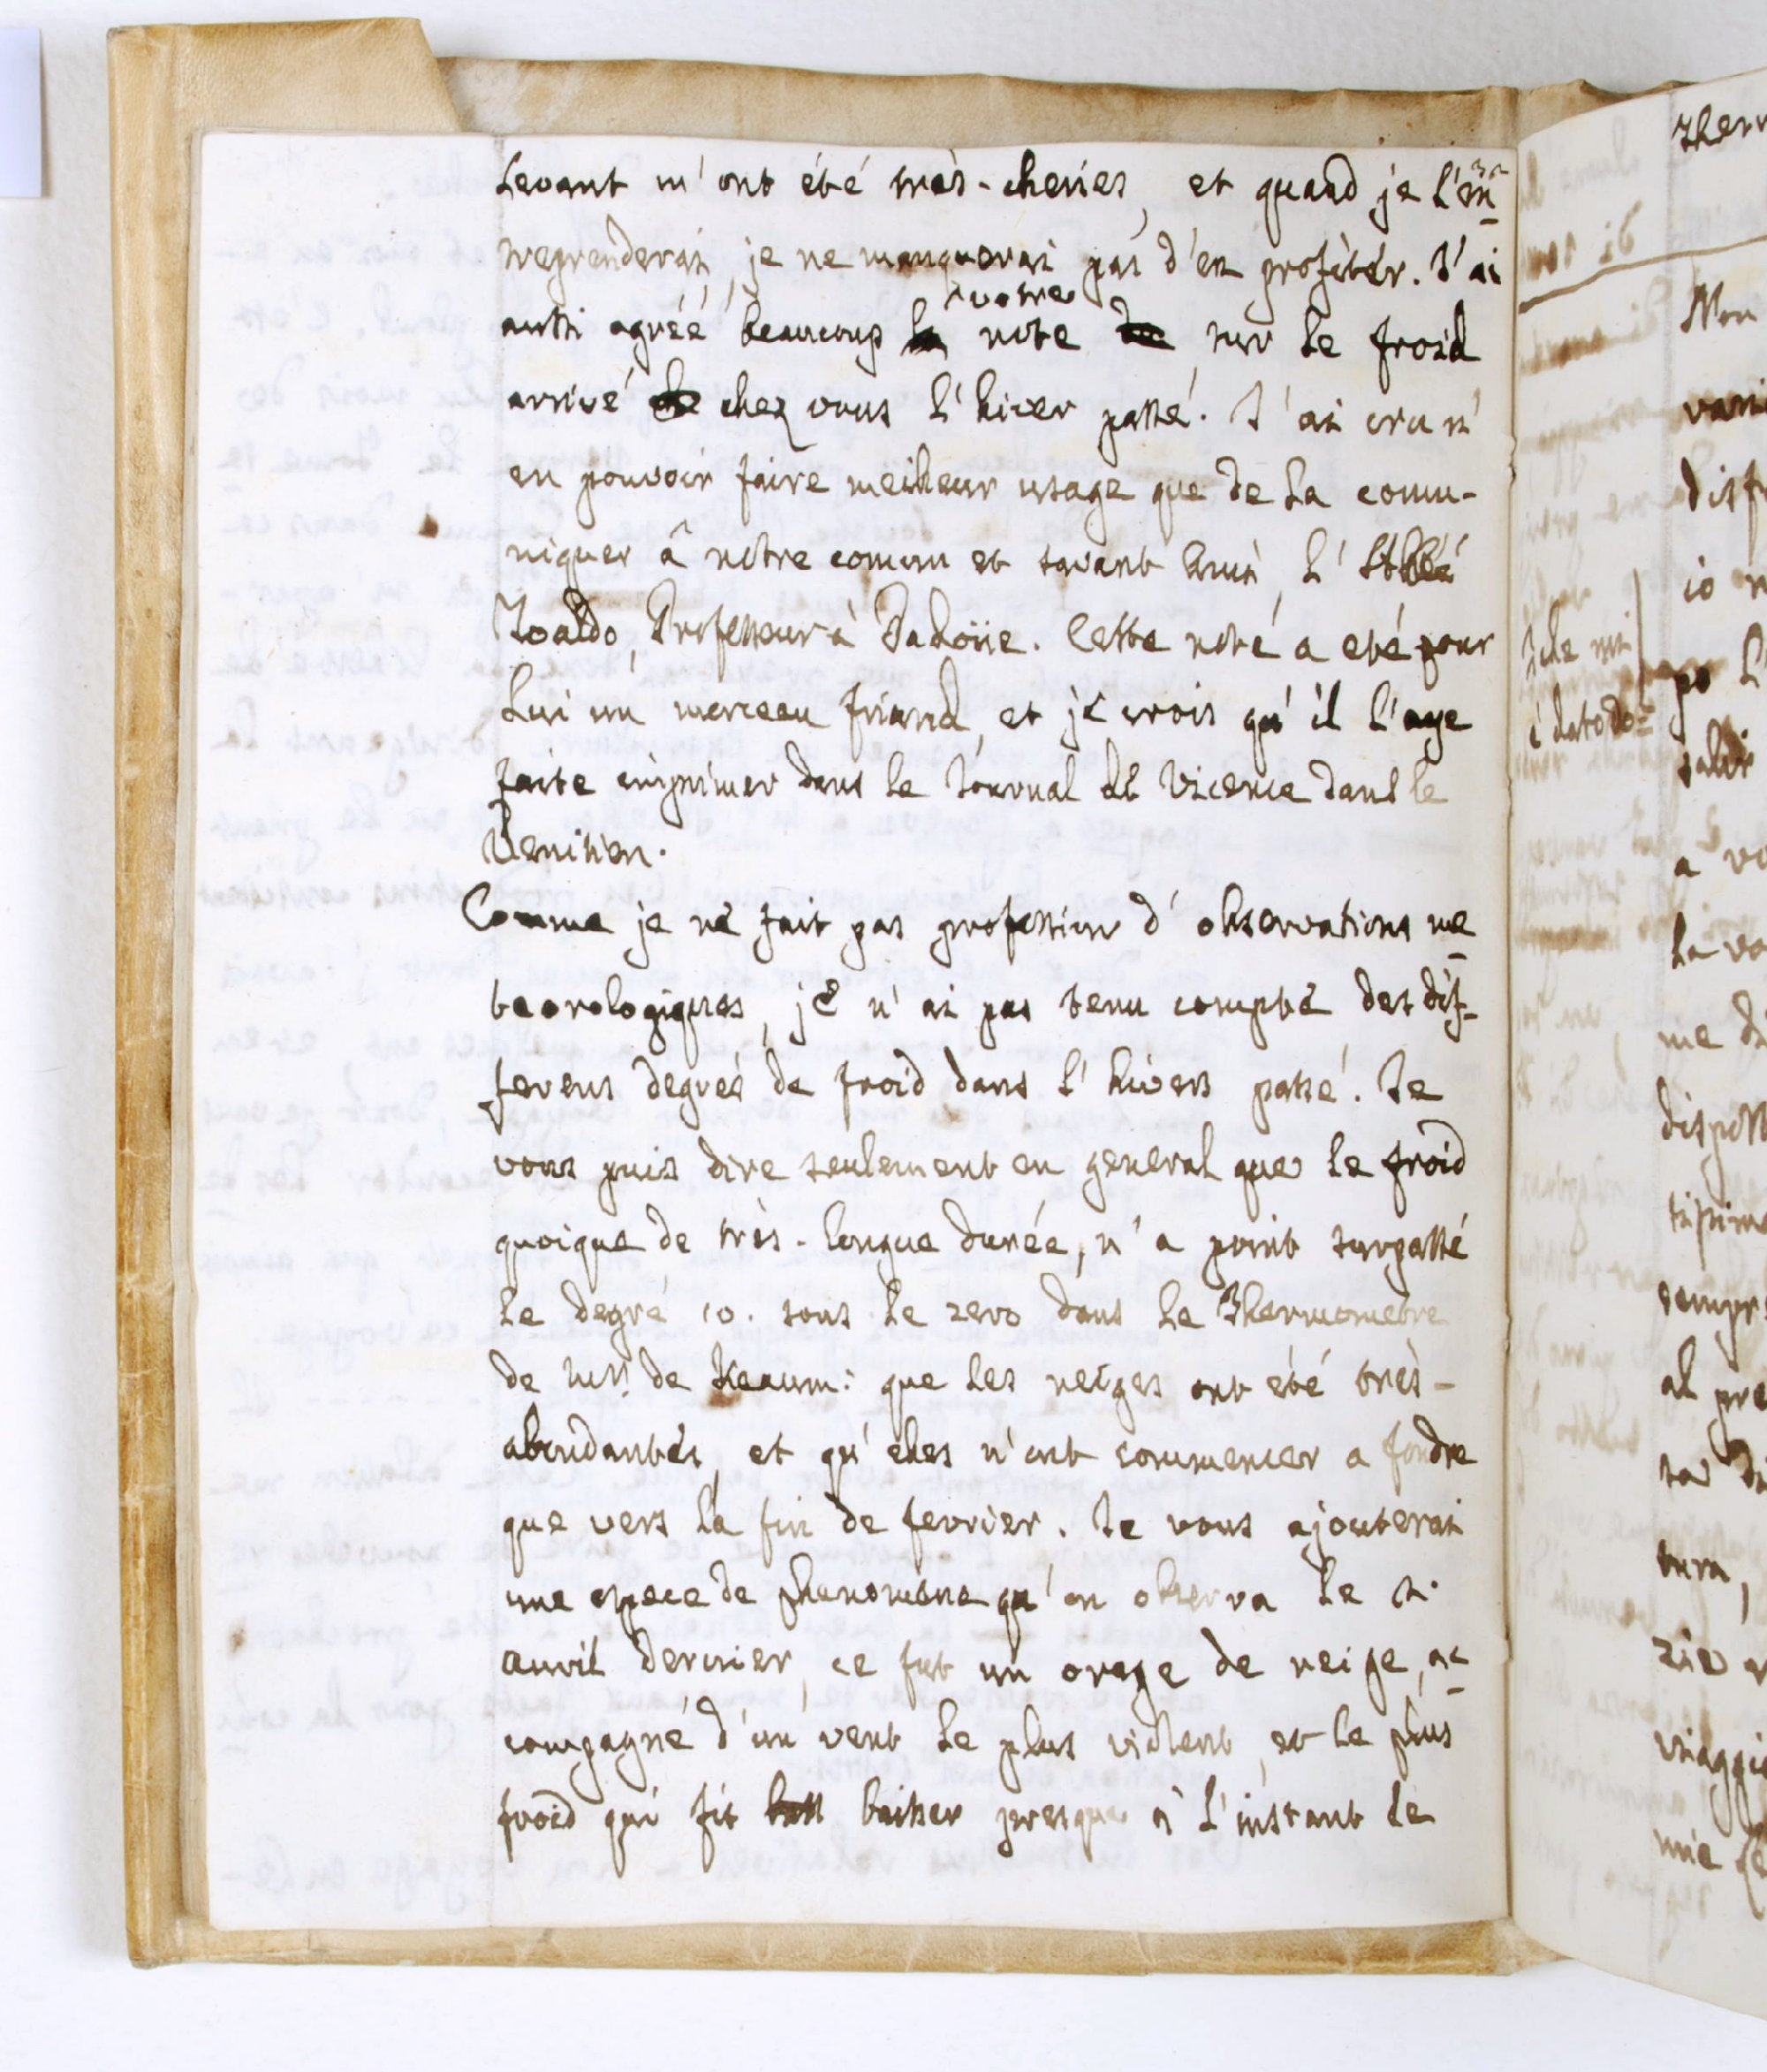 Levant m'ont été très-cheries, et quand je l'en-
treprenderai, je ne manquerai pas d'en profiter. J'ai
aussi agréé beaucoup votre note sur le froid
arrivé chez vous l'hiver passé. J'ai cru n'
en pouvoir faire meilleur usage que de la comu-
niquer à nôtre comun et savant Ami, l'Abbé
Toaldo, Professeur à Padoüe. Cette note a eté pour
lui un morceau friand, et je crois qu'il l'aye
faite imprimer dans le Journal de Vicence dans le
Venitien.
Comme je ne fait pas profession d'observations me-
teorologiques, je n'ai pas tenu compte des dif-
ferens degrés de froid dans l'hivers passé. Je
vous puis dire seulement en general que le froid
quoique de très-longue durée, n'a point surpassé
le degré 10. sous le zero dans le Thermometre
de Mr. de Reaum: que les neiges ont été très-
abondantes, et qu'eles n'ont commencer a fondre
que vers la fin de fevrier. Je vous ajouterai
une espece de phenomene qu'on observa le
avril dernier, ce fut un orage de neige, ac-
compagné d'un vent le plus violent, et le plus
froid qui fit baisser presque à l'instant le
Ther
Mon
disf
io
po l'
a vo
la vo
me di
dispos
sempr
al pre
tura,
zie
viaggi
mie